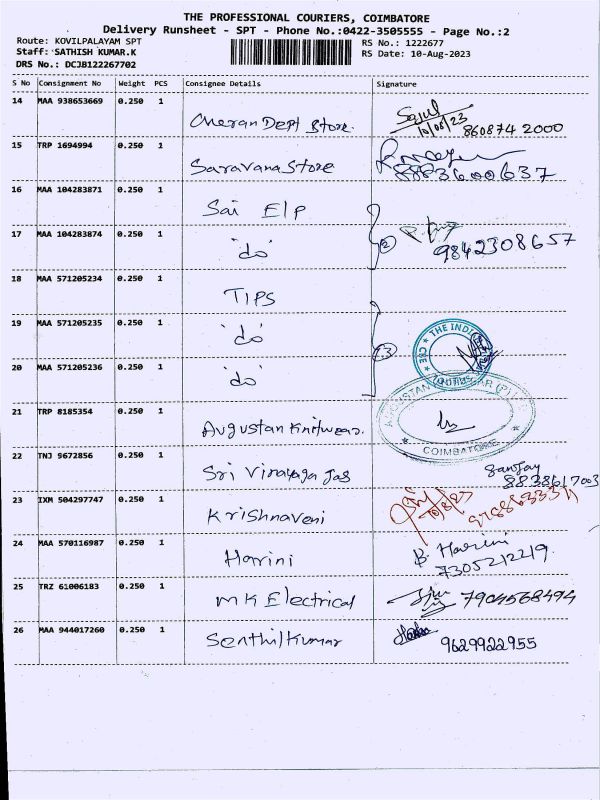 THE PROFESSIONAL COURIERS, COIMBATORE
Delivery Runsheet - SPT - Phone No.:0422-3505555 - Page No.:2
Route: KOVILPALAYAM SPT RS No.: 1222677
Staff: SATHISH KUMAR.K RS Date: 10-Aug-2023
DRS No.: DCJB122267702
S No Consignment No Weight PCS Consignee Details Signature
14 MAA 938653669 0.250 1 Cheran Dept Store. 10/08/23 860874 2000
15 TRP 1694994 0.250 1 Saravana Store 8883600637
16 MAA 104283871 0.250 1 Sai E/P
17 MAA 104283874 0.250 1 "do" 2 9842308657
18 MAA 571205234 0.250 1 TIPS
19 MAA 571205235 0.250 1 "do" THE INDIA CBE
20 MAA 571205236 0.250 1 "do" 3
21 TRP 8185354 0.250 1 Augustan Knitwear. AUGUSTAN COIMBATORE
22 TNJ 9672856 0.250 1 Sri Vinayaga Jas Sanjay 8838617003
23 IXM 504297747 0.250 1 Krishnaveni
24 MAA 570116987 0.250 1 Harini B. Harini 7305212219
25 TRZ 61006183 0.250 1 MK Electrical 7904568494
26 MAA 944017260 0.250 1 Senthil Kumar 9629922955